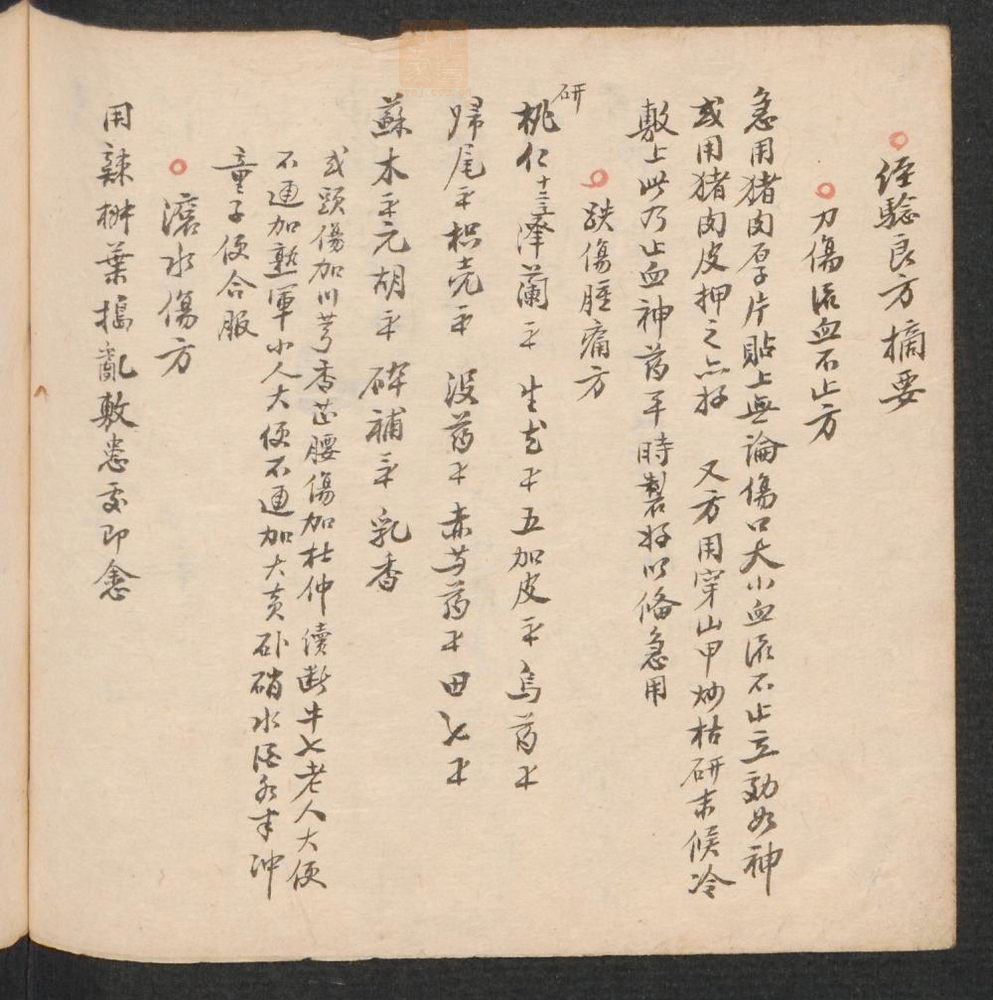 经驗良方摘要
刀傷流血不止方
急用猪肉厚片貼上無論傷口大小血流不止立効如神
或用猪肉皮押之亦好 又方用穿山甲炒枯研末候冷
敷上此乃止血神药平時製好以俻急用
跌傷腫痛方
研
桃仁十二 澤蘭 生芪 五加皮 烏药
歸尾 枳壳 没药 赤芍药 田七
蘇木 元胡 碎補 乳香
或頭傷加川芎香芷腰傷加杜仲續断牛七老人大便
不通加熟軍小人大便不通加大黄朴硝水酒各半冲
童子便合服
滚水傷方
用辣椒葉搗亂敷患處即愈